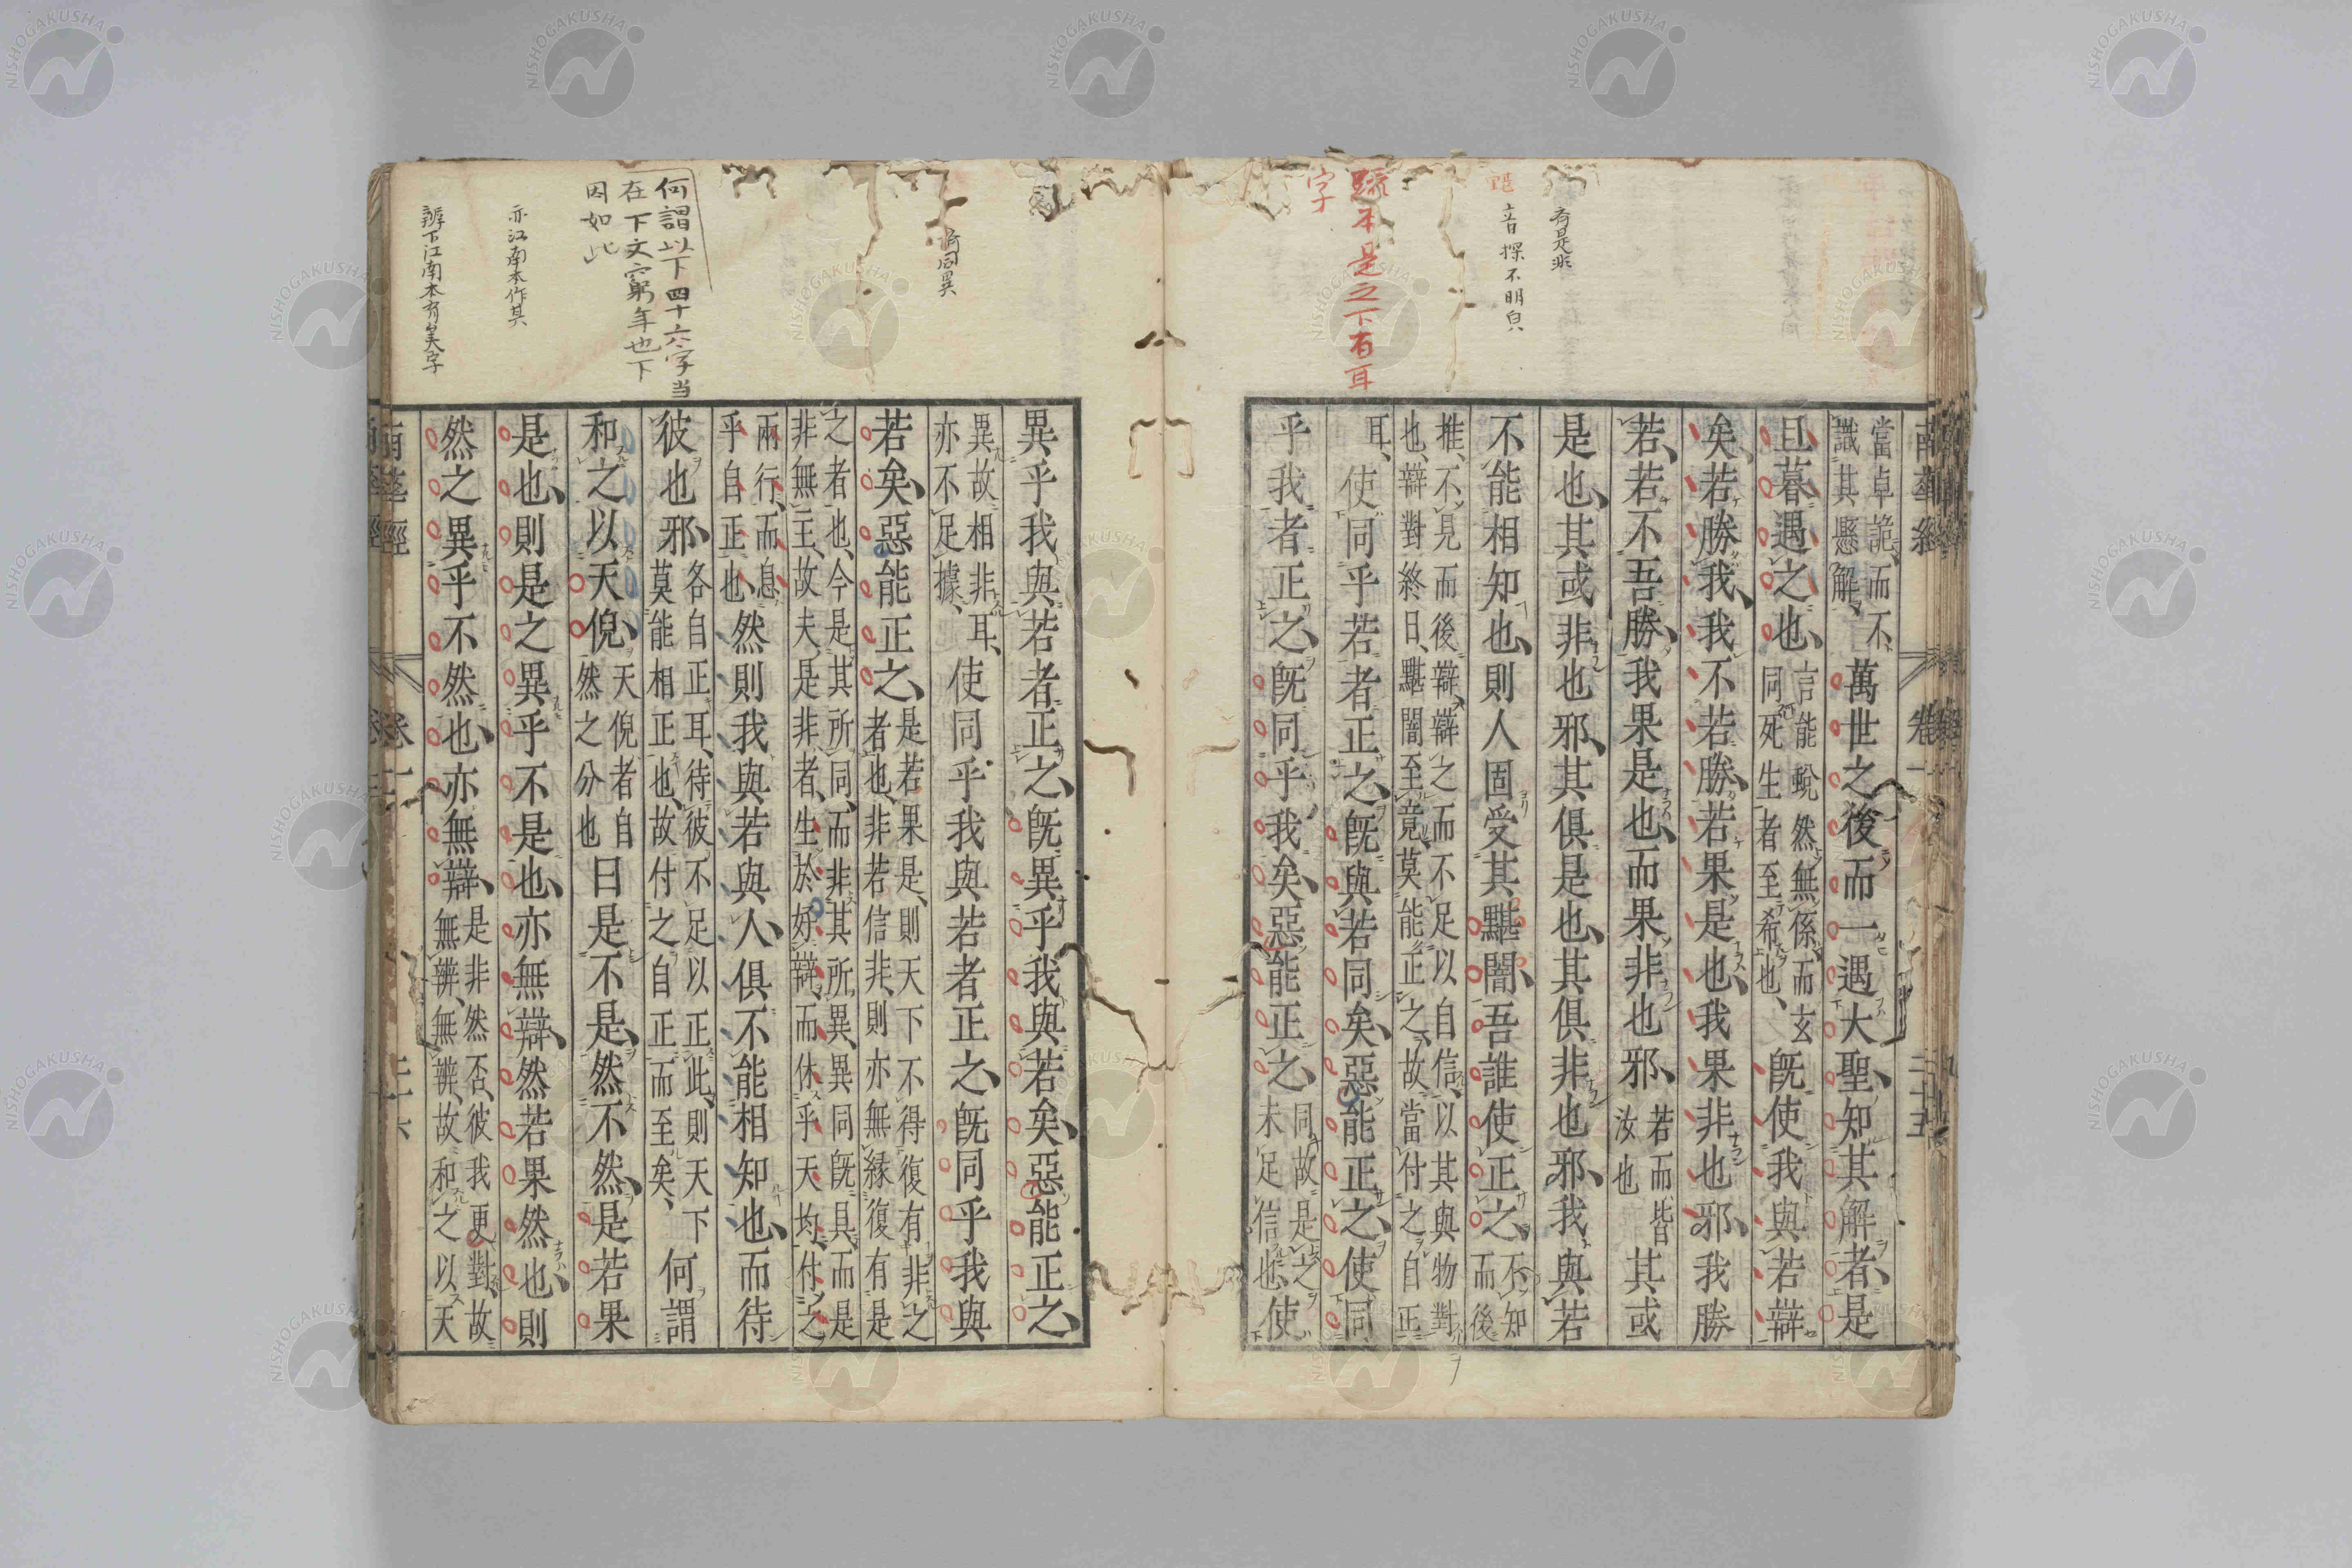 有是非
音探不明皃
疏本是之下有耳
字
當卓詭、而不
識其懸解、
萬世之後而一遇大聖、知其解者、是
旦暮遇之也、
言能蛻然無係、而玄
同死生者至希也、
既使我與若辯
矣、若勝我、我不若勝、若果是也、我果非也邪、我勝
若、若不吾勝、我果是也、而果非也邪、
若而皆
汝也
其或
是也、其或非也邪、其俱是也、其俱非也邪、我與若
不能相知也、則人固受其黮闇、吾誰使正之、
不知
而後
推、不見而後辯、辯之而不足以自信、以其與物對
也、辯對終日、黮闇至竟、莫能正之、故當付之自正
耳、
使同乎若者正之、既與若同矣、惡能正之、使同
乎我者正之、既同乎我矣、惡能正之、
同故是之
未足信也、
使
異乎我與若者正之、既異乎我與若矣、惡能正之、
異故相非耳、
亦不足據、
使同乎我與若者正之、既同乎我與
若矣、惡能正之、
是若果是、則天下不得復有非之
者也、非若信非、則亦無緣復有是
之者也、今是其所同、而非其所異、異同既具、而是
非無主、故夫是非者、生於好辯、而休乎天均、付之
兩行、而息
乎自正也、
然則我與若與人、俱不能相知也、而待
彼也邪、
各自正耳、待彼不足以正此、則天下
莫能相正也、故付之自正而至矣、
何謂
和之以天倪、
天倪者自
然之分也
曰是不是、然不然、是若果
是也、則是之異乎不是也、亦無辯、然若果然也、則
然之異乎不然也、亦無辯、
是非然否、彼我更對、故
無辨、無辨、故和之以天
何謂以下四十六字当
在下文窮年也下
因如此
亦江南本作其
辨下江南本有矣字
南華經
卷一
二十五
南華經
卷一
二十六
NISHOGAKUSHA